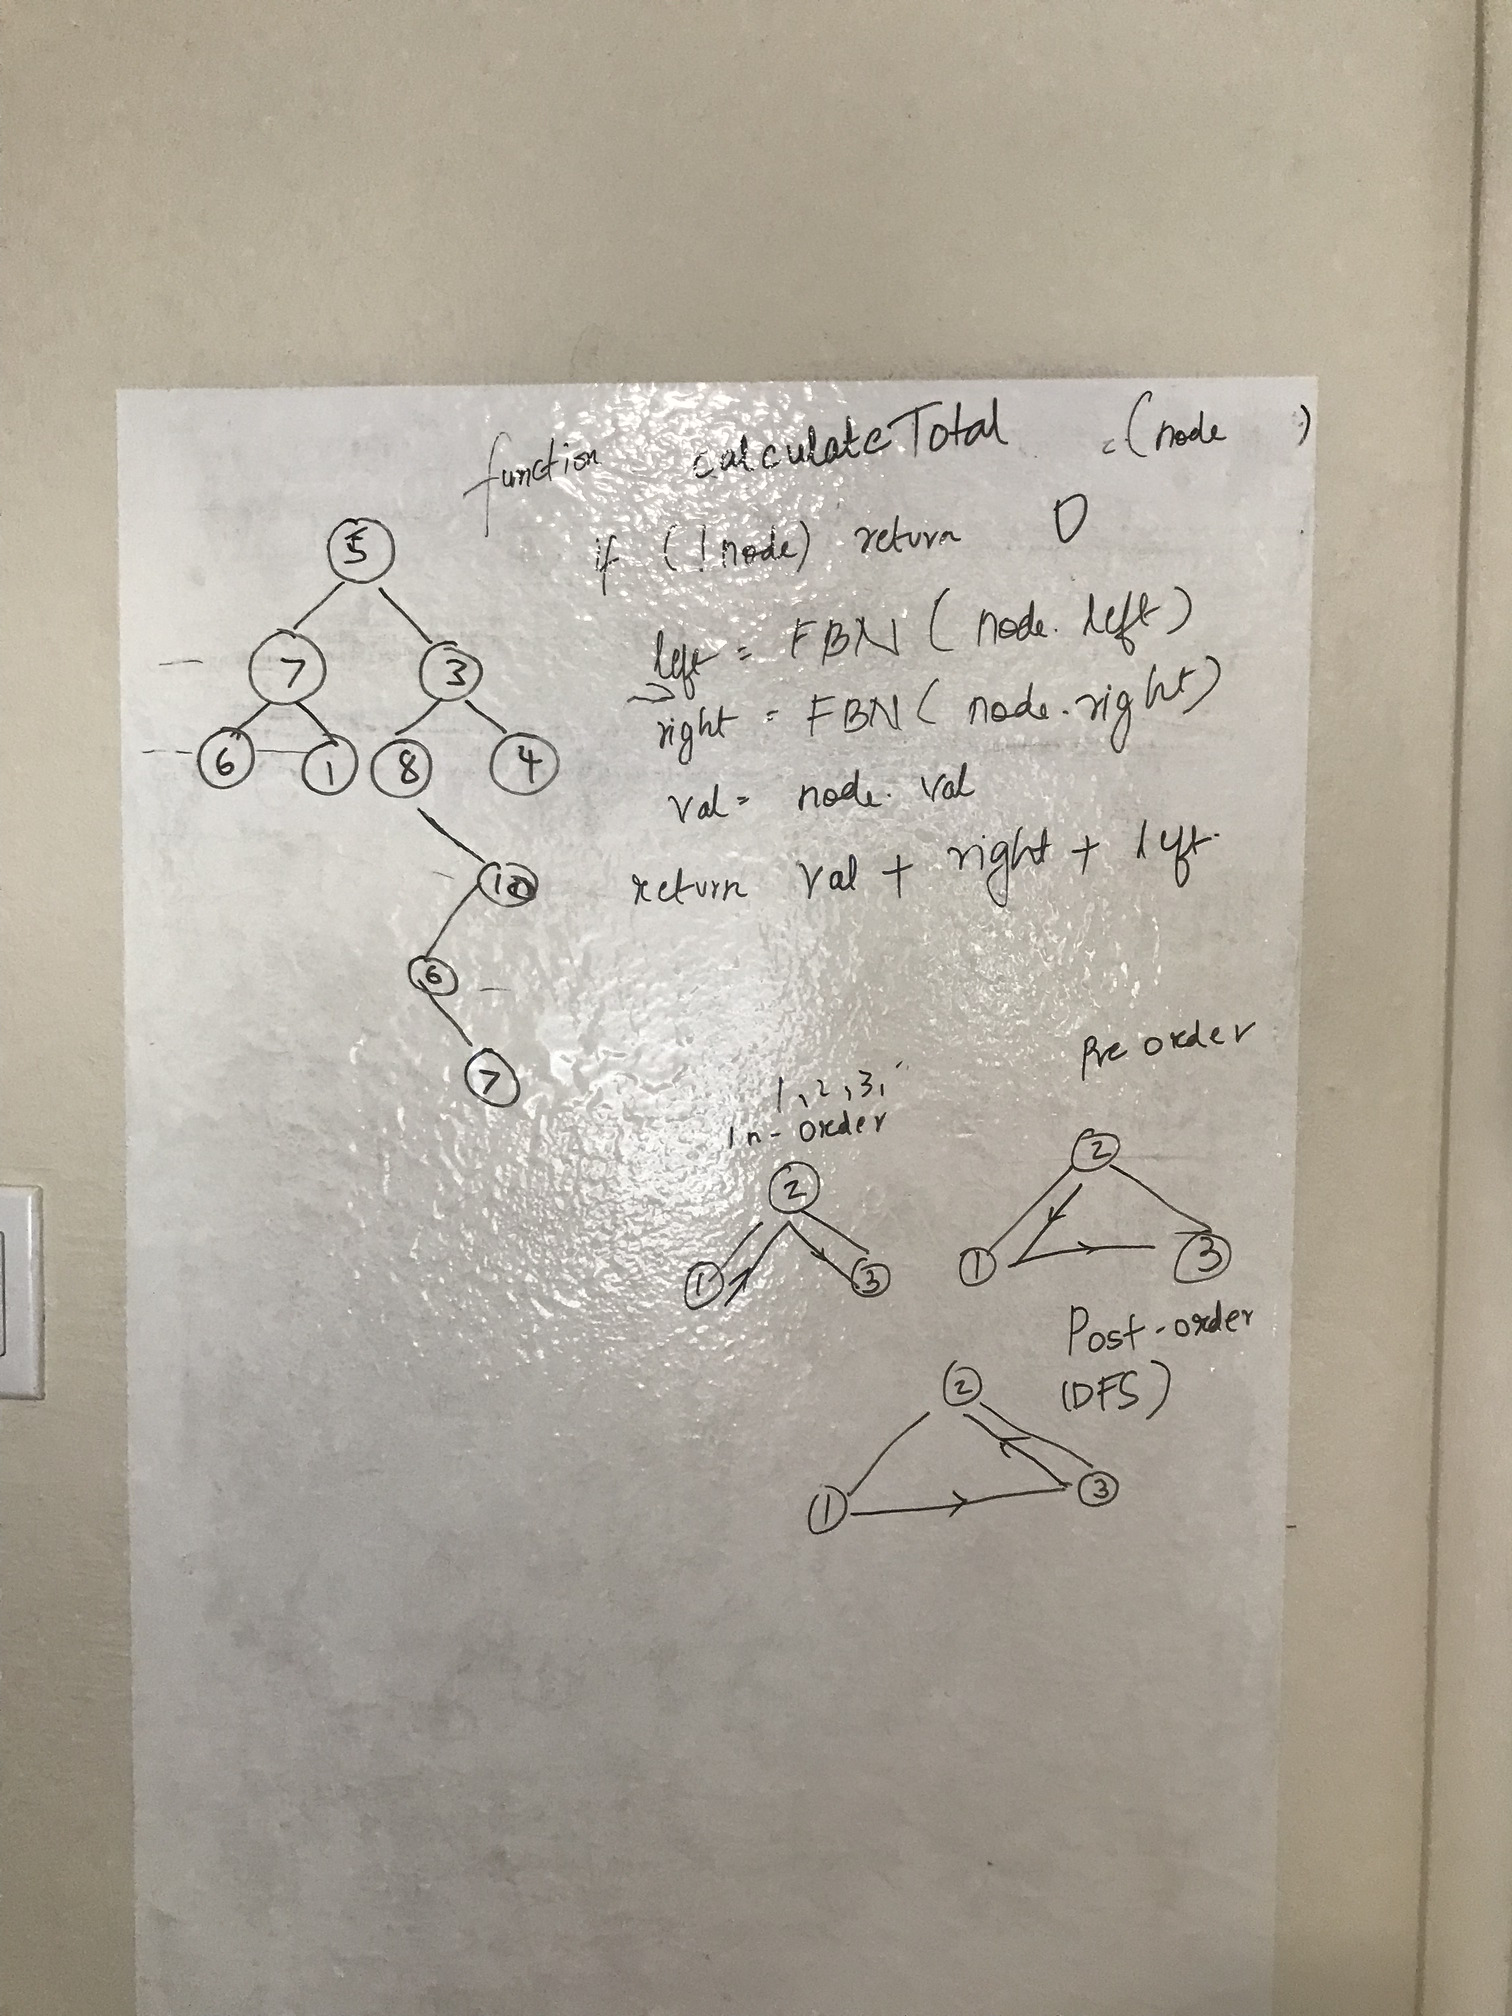 function calculateTotal = (node )
if (!node) return 0
left = FBN (node.left)
right = FBN (node.right)
val = node.val
return val + right + left.
5
7 3
6 1 8 4
10
6
7
1,2,3,
In-order
2
1 3
Pre order
2
1 3
Post-order
(DFS)
2
1 3